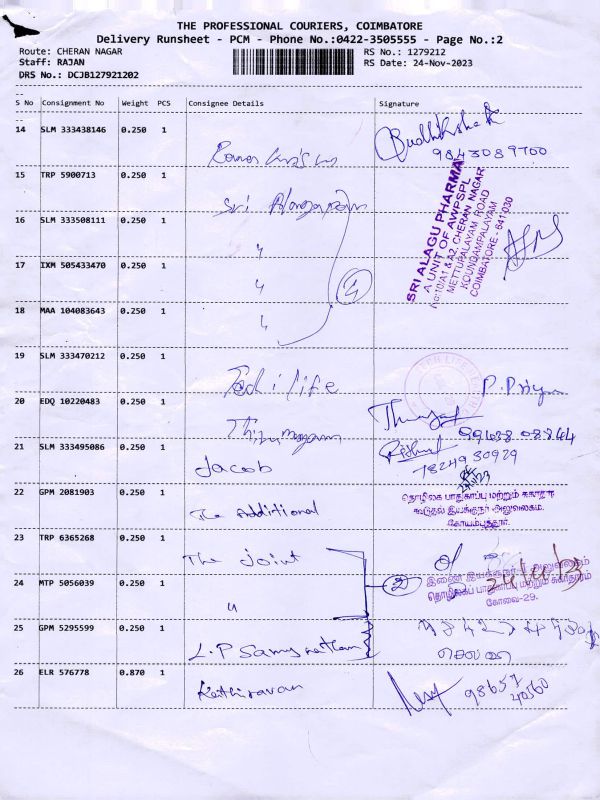 THE PROFESSIONAL COURIERS, COIMBATORE
Delivery Runsheet - PCM - Phone No.:0422-3505555 - Page No.:2
Route: CHERAN NAGAR
RS No.: 1279212
Staff: RAJAN
RS Date: 24-Nov-2023
DRS No.: DCJB127921202
S No Consignment No Weight PCS Consignee Details Signature
14 SLM 333438146 0.250 1
9843089700
15 TRP 5900713 0.250 1
Sri
SRI ALAGU PHARMA
A UNIT OF AWPSPL
No:10/A1 & A2, CHERAN NAGAR
METTUPALAYAM ROAD
KOUNDAMPALAYAM
COIMBATORE - 641 030
16 SLM 333508111 0.250 1
"
17 IXM 505433470 0.250 1
"
4
18 MAA 104083643 0.250 1
"
19 SLM 333470212 0.250 1
life
P. Priya
20 EDQ 10220483 0.250 1
99438 08844
21 SLM 333495086 0.250 1
Jacob
7824930929
22 GPM 2081903 0.250 1
The Additional
தொழிலக பாதுகாப்பு மற்றும் சுகாதார
கூடுதல் இயக்குநர் அலுவலகம்,
கோயம்புத்தூர்.
23 TRP 6365268 0.250 1
The Joint
24/11/23
24 MTP 5056039 0.250 1
"
2
இணை இயக்குநர் அலுவலகம்
தொழிலகப் பாதுகாப்பு மற்றும் சுகாதாரம்
கோவை-29.
25 GPM 5295599 0.250 1
L.P Samynathan
26 ELR 576778 0.870 1
Kathiravan
98657